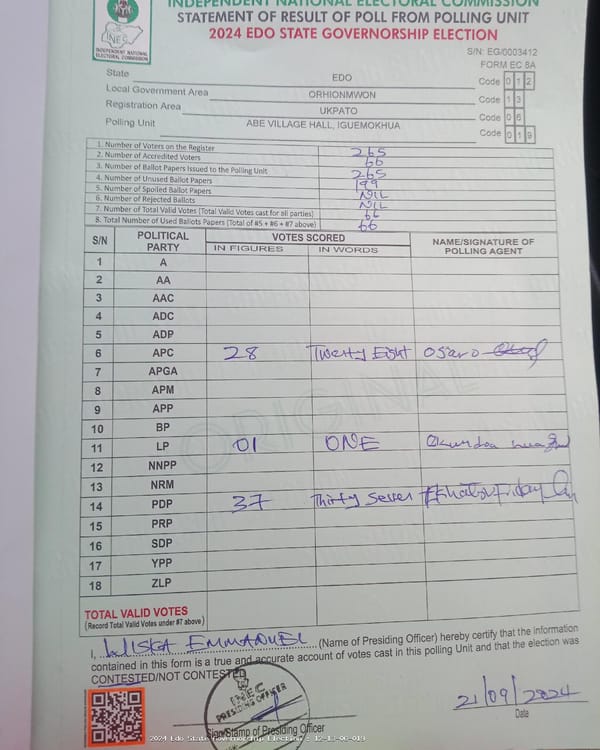 INDEPENDENT NATIONAL ELECTORAL COMMISSION
STATEMENT OF RESULT OF POLL FROM POLLING UNIT
2024 EDO STATE GOVERNORSHIP ELECTION
INEC
INDEPENDENT NATIONAL
ELECTORAL COMMISSION
S/N: EG/0003412
FORM EC 8A
State EDO Code 0 1 2
Local Government Area ORHIONMWON Code 1 3
Registration Area UKPATO Code 0 6
Polling Unit ABE VILLAGE HALL, IGUEMOKHUA Code 0 1 9
1. Number of Voters on the Register 265
2. Number of Accredited Voters 66
3. Number of Ballot Papers Issued to the Polling Unit 265
4. Number of Unused Ballot Papers 199
5. Number of Spoiled Ballot Papers NIL
6. Number of Rejected Ballots NIL
7. Number of Total Valid Votes (Total Valid Votes cast for all parties) 66
8. Total Number of Used Ballots Papers (Total of #5 + #6 + #7 above) 66
S/N POLITICAL PARTY VOTES SCORED NAME/SIGNATURE OF POLLING AGENT
IN FIGURES IN WORDS
1 A
2 AA
3 AAC
4 ADC
5 ADP
6 APC 28 Twenty Eight Osaro
7 APGA
8 APM
9 APP
10 BP
11 LP 01 ONE
12 NNPP
13 NRM
14 PDP 37 Thirty Seven Friday
15 PRP
16 SDP
17 YPP
18 ZLP
ORIGINAL
TOTAL VALID VOTES
(Record Total Valid Votes under #7 above)
I, EMMANUEL (Name of Presiding Officer) hereby certify that the information
contained in this form is a true and accurate account of votes cast in this polling Unit and that the election was
CONTESTED/NOT CONTESTED
INEC
PRESIDING OFFICER
21/09/2024
Sign/Stamp of Presiding Officer
Date
2024 Edo State Governorship Election - 12-13-06-019